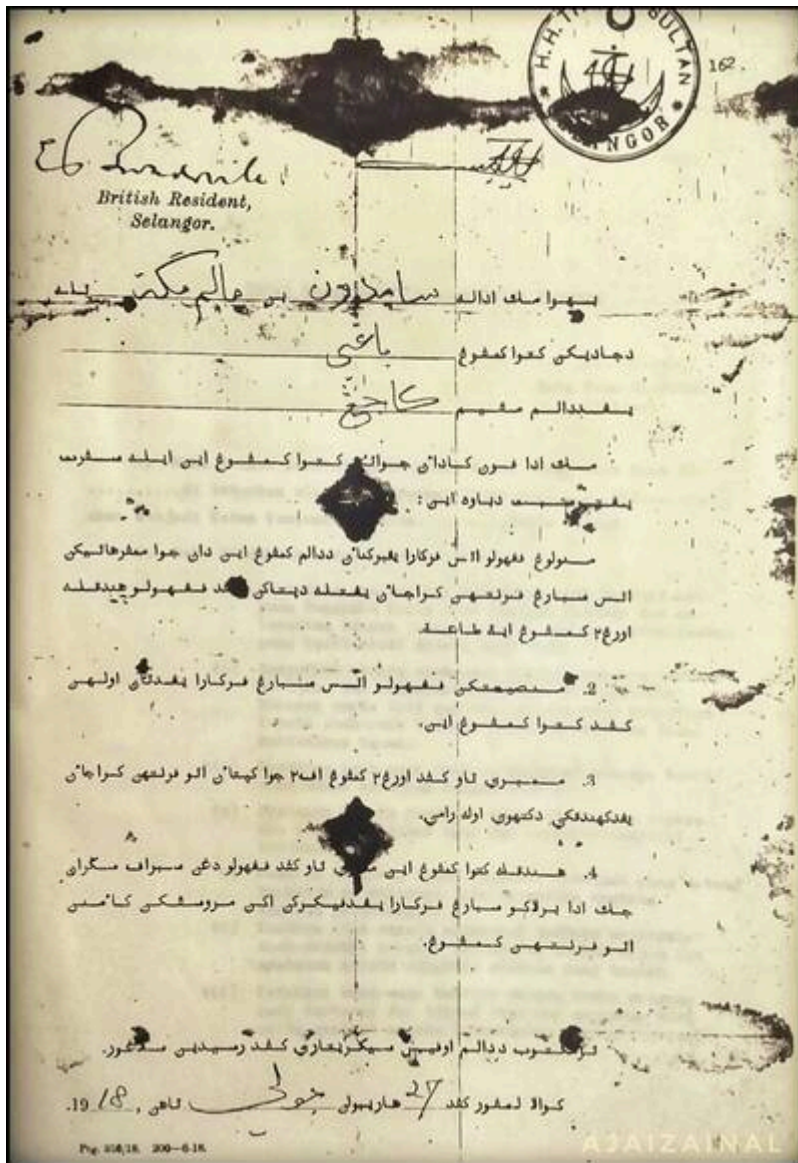 H.H. THE SULTAN
SELANGOR
162.
British Resident,
Selangor.
بهوا مك اداله سامدون بن
دجاديکن کتوا کمڤوڠ باڠي
يڠددالم مقيم کاجڠ
مك ادا ڤون کادأن جواتن کتوا کمڤوڠ اين اياله سڤرت
يڠترسبت دباوه اين:
منولوڠ ڤڠهولو اتس ڤرکارا يڠبرکنأن ددالم کمڤوڠ اين دان جوا ممرهاتيکن
اتس سبارڠ ڤرنتهن کراجأن يڠتله دپتاکن ڤد ڤڠهولو هندقله
اورڠ٢ کمڤوڠ ايت طاعة.
2. منصيحتکن ڤڠهولو اتس سبارڠ ڤرکارا يڠدتڽأ اوليهن
کڤد کتوا کمڤوڠ اين.
3. ممبري تاو کڤد اورڠ٢ کمڤوڠ اڤ٢ جوا کڽتأن اتو ڤرنتهن کراجأن
يڠدکهندقکي دکتهوي اوله رامي.
4. هندقله کتوا کمڤوڠ اين ممبري تاو کڤد ڤڠهولو دڠن سبراڤ سݢران
جك ادا برلاکو سبارڠ ڤرکارا يڠدفيکرکن اکن مروسقکن کأمنن
اتو ڤرنتهن کمڤوڠ.
ترمکتوب ددالم اوفيس سيکريتاري کڤد رسيدين سلاڠور.
کوالا لمڤور کڤد 27 هاريبولن جولي تاهن 1918.
Ptg. 316/18. 200—6-18.
AJAIZAINAL